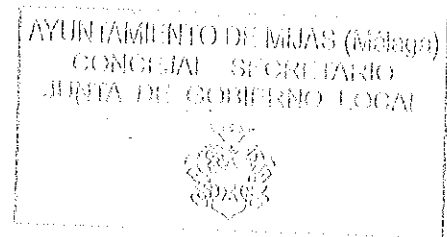 AYUNTAMIENTO DE MIJAS (Málaga)
CONCEJAL SECRETARIO
JUNTA DE GOBIERNO LOCAL